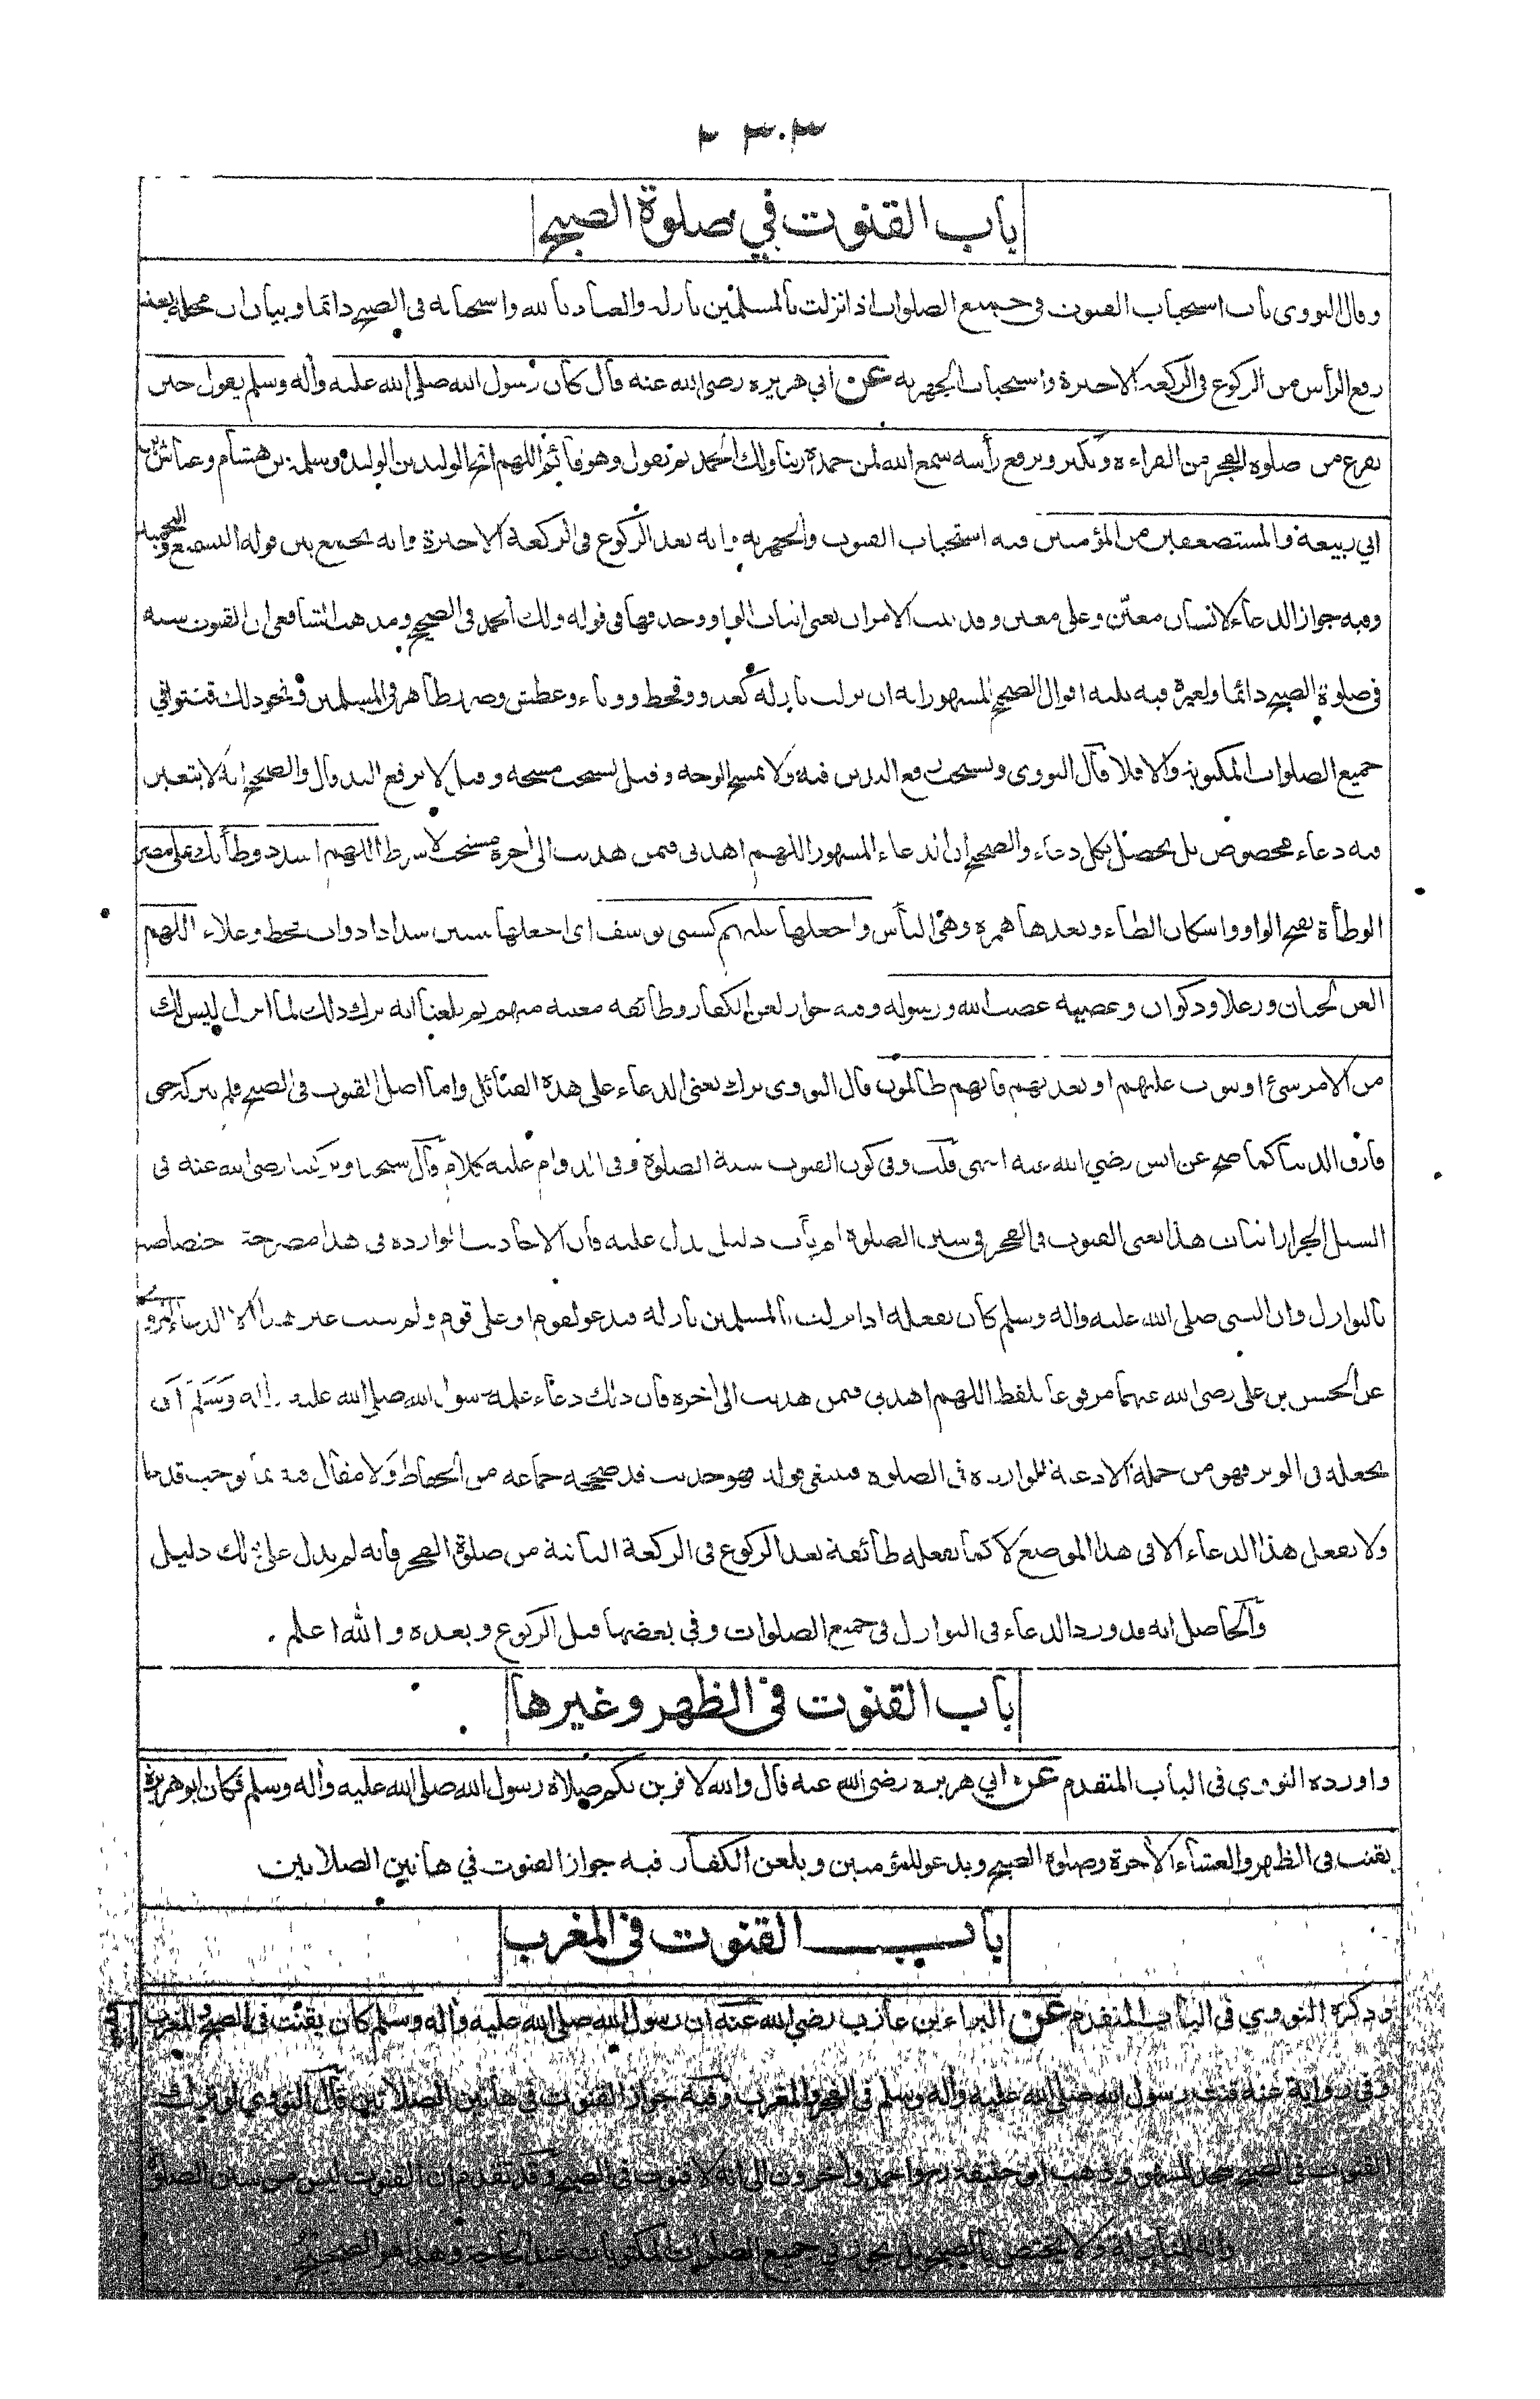 ٣٠٣ ٢
باب القنوت في صلوة الصبح
وقال النووي باب استحباب القنوت في جميع الصلوات اذا نزلت بالمسلمين نازلة والعياذ بالله واستحبابه في الصبح دائما وبيان ان محله بعد
رفع الرأس من الركوع في الركعة الاخيرة واستحباب الجهر به عن ابي هريرة رضي الله عنه قال كان رسول الله صلى الله عليه وأله وسلم يقول حين
يفرغ من صلوة الفجر من القراءة ويكبر ويرفع رأسه سمع الله لمن حمده ربنا ولك الحمد ثم يقول وهو قائم اللهم انج الوليد بن الوليد وسلمة بن هشام وعياش بن
ابي ربيعة والمستضعفين من المؤمنين فيه استحباب القنوت والجهر به وانه بعد الركوع في الركعة الاخيرة وانه يجمع بين قوله التسميع والتحميد
وفيه جواز الدعاء لانسان معين وعلى معين وقد ثبت الامران يعني اثبات الواو وحذفها في قوله ولك الحمد في الصحيح ومذهب الشافعي ان القنوت سنة
في صلوة الصبح دائما ولغيره فيه ثلثة اقوال الصحيح المشهور انه ان نزلت نازلة كعدو وقحط ووباء وعطش وضرر ظاهر في المسلمين ونحو ذلك قنتوا في
جميع الصلوات المكتوبة والا فلا قال النووي ويستحب رفع اليدين فيه ولا يمسح الوجه وقيل يستحب مسحه وقيل لا يرفع اليد قال والصحيح انه لا يتعين
فيه دعاء مخصوص بل يحصل بكل دعاء والصحيح ان الدعاء المشهور اللهم اهدني فيمن هديت الى أخره مستحب لا شرط اللهم اشدد وطأتك على مضر
الوطأة بفتح الواو واسكان الطاء وبعدها همزة وهي البأس واجعلها عليهم كسني يوسف اى اجعلها سنين شدادا ذوات قحط وغلاء اللهم
العن لحيان ورعلا وذكوان وعصية عصت الله ورسوله وفيه جواز لعن الكفار وطائفة معينة منهم ثم بلغنا انه ترك ذلك لما انزل ليس لك
من الامر شئ او يتوب عليهم او يعذبهم فانهم ظالمون قال النووي ترك يعني الدعاء على هذه القبائل واما اصل القنوت في الصبح فلم يتركه حتى
فارق الدنيا كما صح عن انس رضي الله عنه انتهى قلت وفي كون القنوت سنة الصلوة وفي الدوام عليه كلام قال شيخنا وبركتنا رضي الله عنه في
السيل الجرار اثبات هذا يعني القنوت في الفجر في سنن الصلوة لم يأت دليل يدل عليه فان الاحاديث الواردة في هذا مصرحة باختصاصه
بالنوازل وان النبي صلى الله عليه واله وسلم كان يفعله اذا نزلت بالمسلمين نازلة فيدعو لقوم او على قوم ولم يثبت غير هذا الا الدعاء المروي
عن الحسن بن علي رضي الله عنهما مرفوعا بلفظ اللهم اهدني فيمن هديت الى أخره فان ذلك دعاء علمه رسول الله صلى الله عليه وأله وسلم ان
يجعله في الوتر فهو من جملة الادعية الواردة في الصلوة فينبغي قوله فهو حديث قد صححه جماعة من الحفاظ ولا مقال فيه بما يوجب قدحا
ولا يفعل هذا الدعاء الا في هذا الموضع لا كما يفعله طائفة بعد الركوع في الركعة الثانية من صلوة الفجر فانه لم يدل على ذلك دليل
والحاصل انه قد ورد الدعاء في النوازل في جميع الصلوات وفي بعضها قبل الركوع وبعده والله اعلم .
باب القنوت في الظهر وغيرها
واورده النووي في الباب المتقدم عن ابي هريرة رضي الله عنه قال والله لاقربن بكم صلاة رسول الله صلى الله عليه وأله وسلم فكان ابو هريرة
يقنت في الظهر والعشاء الأخرة وصلوة الصبح ويدعو للمؤمنين ويلعن الكفار فيه جواز القنوت في هاتين الصلاتين
باب القنوت في المغرب
وذكره النووي في الباب المتقدم عن البراء بن عازب رضي الله عنه ان رسول الله صلى الله عليه وأله وسلم كان يقنت في الصبح والمغرب
وفي رواية عنه قنت رسول الله صلى الله عليه واله وسلم في الفجر والمغرب وفيه جواز القنوت في هاتين الصلاتين قال النووي لو ترك
القنوت في الصبح سجد للسهو وذهب ابو حنيفة رح واحمد وأخرون الى انه لا قنوت في الصبح وقد تقدم ان القنوت ليس من سنن الصلوة
وانه للنازلة ولا يختص بالصبح بل يجوز في جميع الصلوات المكتوبات عند الحاجة وهذا هو الصحيح